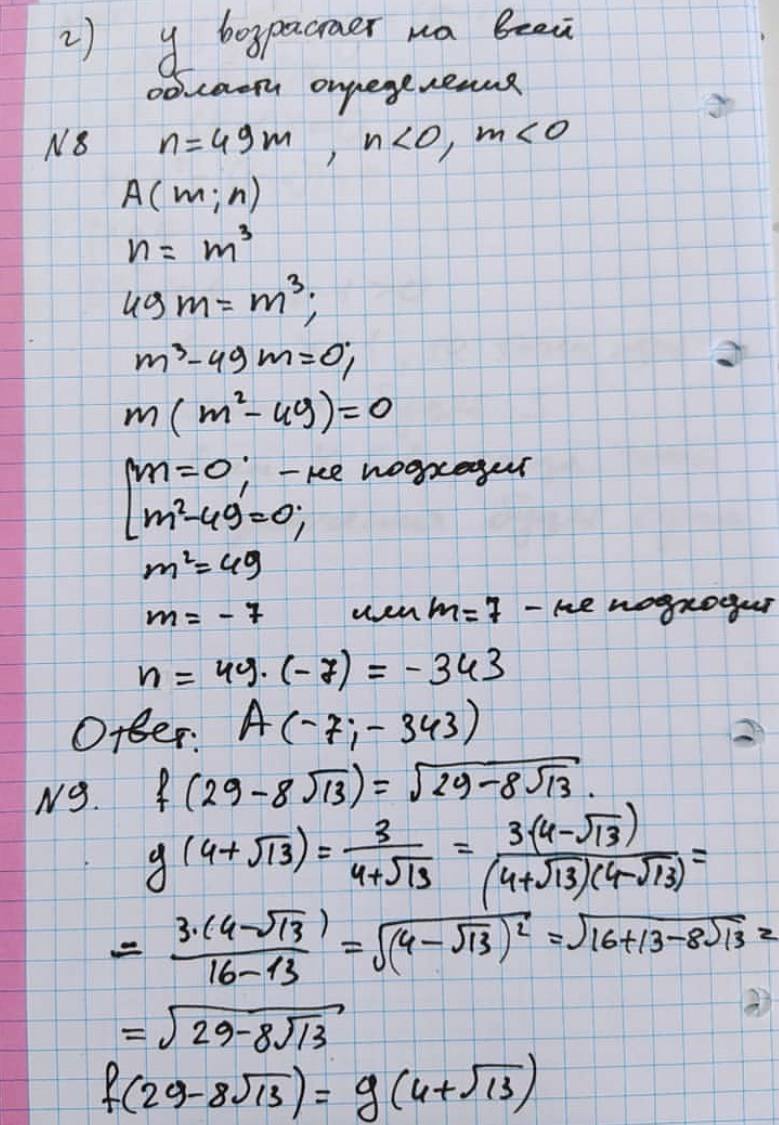 г) у возрастает на всей
области определения
N8 n=49m, n<0, m<0
A(m;n)
n= m³
49m=m³;
m³-49m=0;
m(m²-49)=0
[m=0; - не подходит
m²-49=0;
m²=49
m= -7 или m=7 - не подходит
n = 49·(-7) = -343
Ответ: A(-7;-343)
N9. f(29-8√13)= √(29-8√13).
g(4+√13)= 3/(4+√13) = 3·(4-√13)/((4+√13)(4-√13)) =
= 3·(4-√13)/(16-13) = √((4-√13)²) = √(16+13-8√13) =
= √(29-8√13)
f(29-8√13)= g(4+√13)